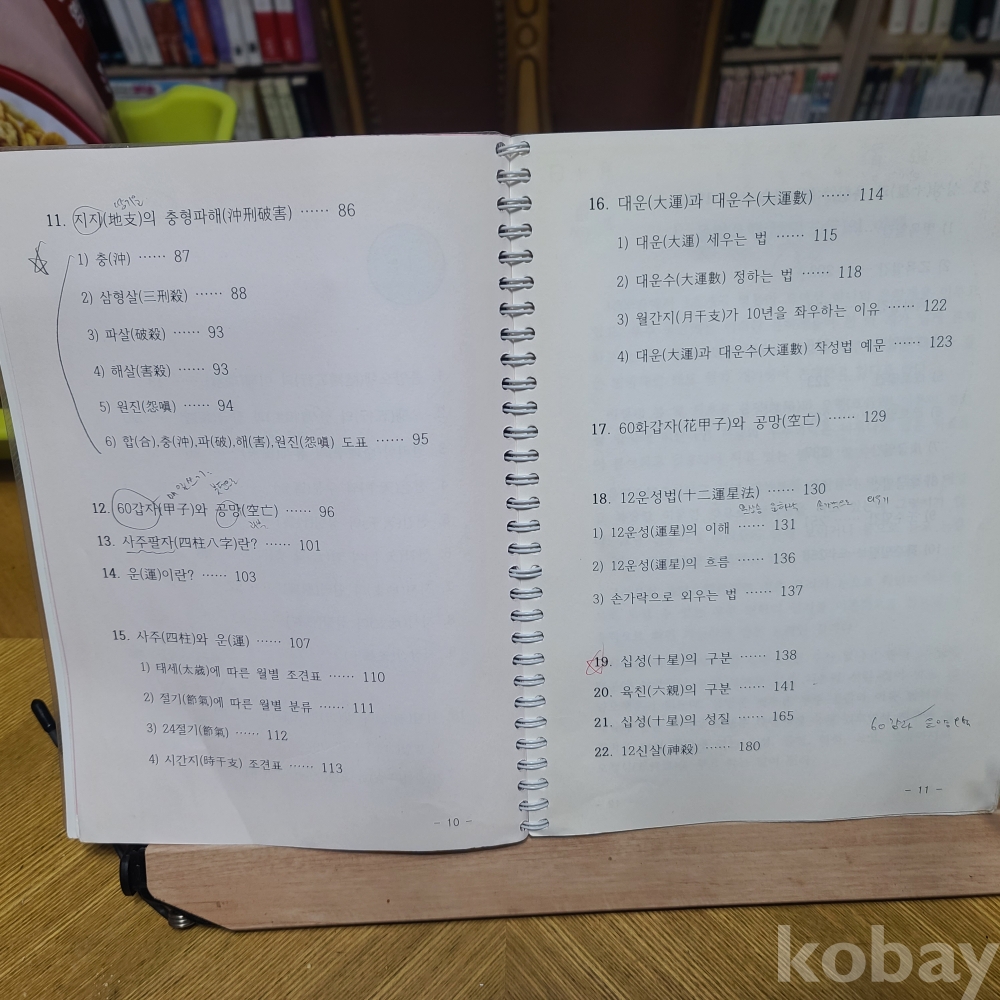 11. 지지(地支)의 충형파해(沖刑破害) …… 86
1) 충(沖) …… 87
2) 삼형살(三刑殺) …… 88
3) 파살(破殺) …… 93
4) 해살(害殺) …… 93
5) 원진(怨嗔) …… 94
6) 합(合),충(沖),파(破),해(害),원진(怨嗔) 도표 …… 95
12. 60갑자(甲子)와 공망(空亡) …… 96
13. 사주팔자(四柱八字)란? …… 101
14. 운(運)이란? …… 103
15. 사주(四柱)와 운(運) …… 107
1) 태세(太歲)에 따른 월별 조견표 …… 110
2) 절기(節氣)에 따른 월별 분류 …… 111
3) 24절기(節氣) …… 112
4) 시간지(時干支) 조견표 …… 113
- 10 -
16. 대운(大運)과 대운수(大運數) …… 114
1) 대운(大運) 세우는 법 …… 115
2) 대운수(大運數) 정하는 법 …… 118
3) 월간지(月干支)가 10년을 좌우하는 이유 …… 122
4) 대운(大運)과 대운수(大運數) 작성법 예문 …… 123
17. 60화갑자(花甲子)와 공망(空亡) …… 129
18. 12운성법(十二運星法) …… 130
1) 12운성(運星)의 이해 …… 131
2) 12운성(運星)의 흐름 …… 136
3) 손가락으로 외우는 법 …… 137
19. 십성(十星)의 구분 …… 138
20. 육친(六親)의 구분 …… 141
21. 십성(十星)의 성질 …… 165
22. 12신살(神殺) …… 180
- 11 -
kobay